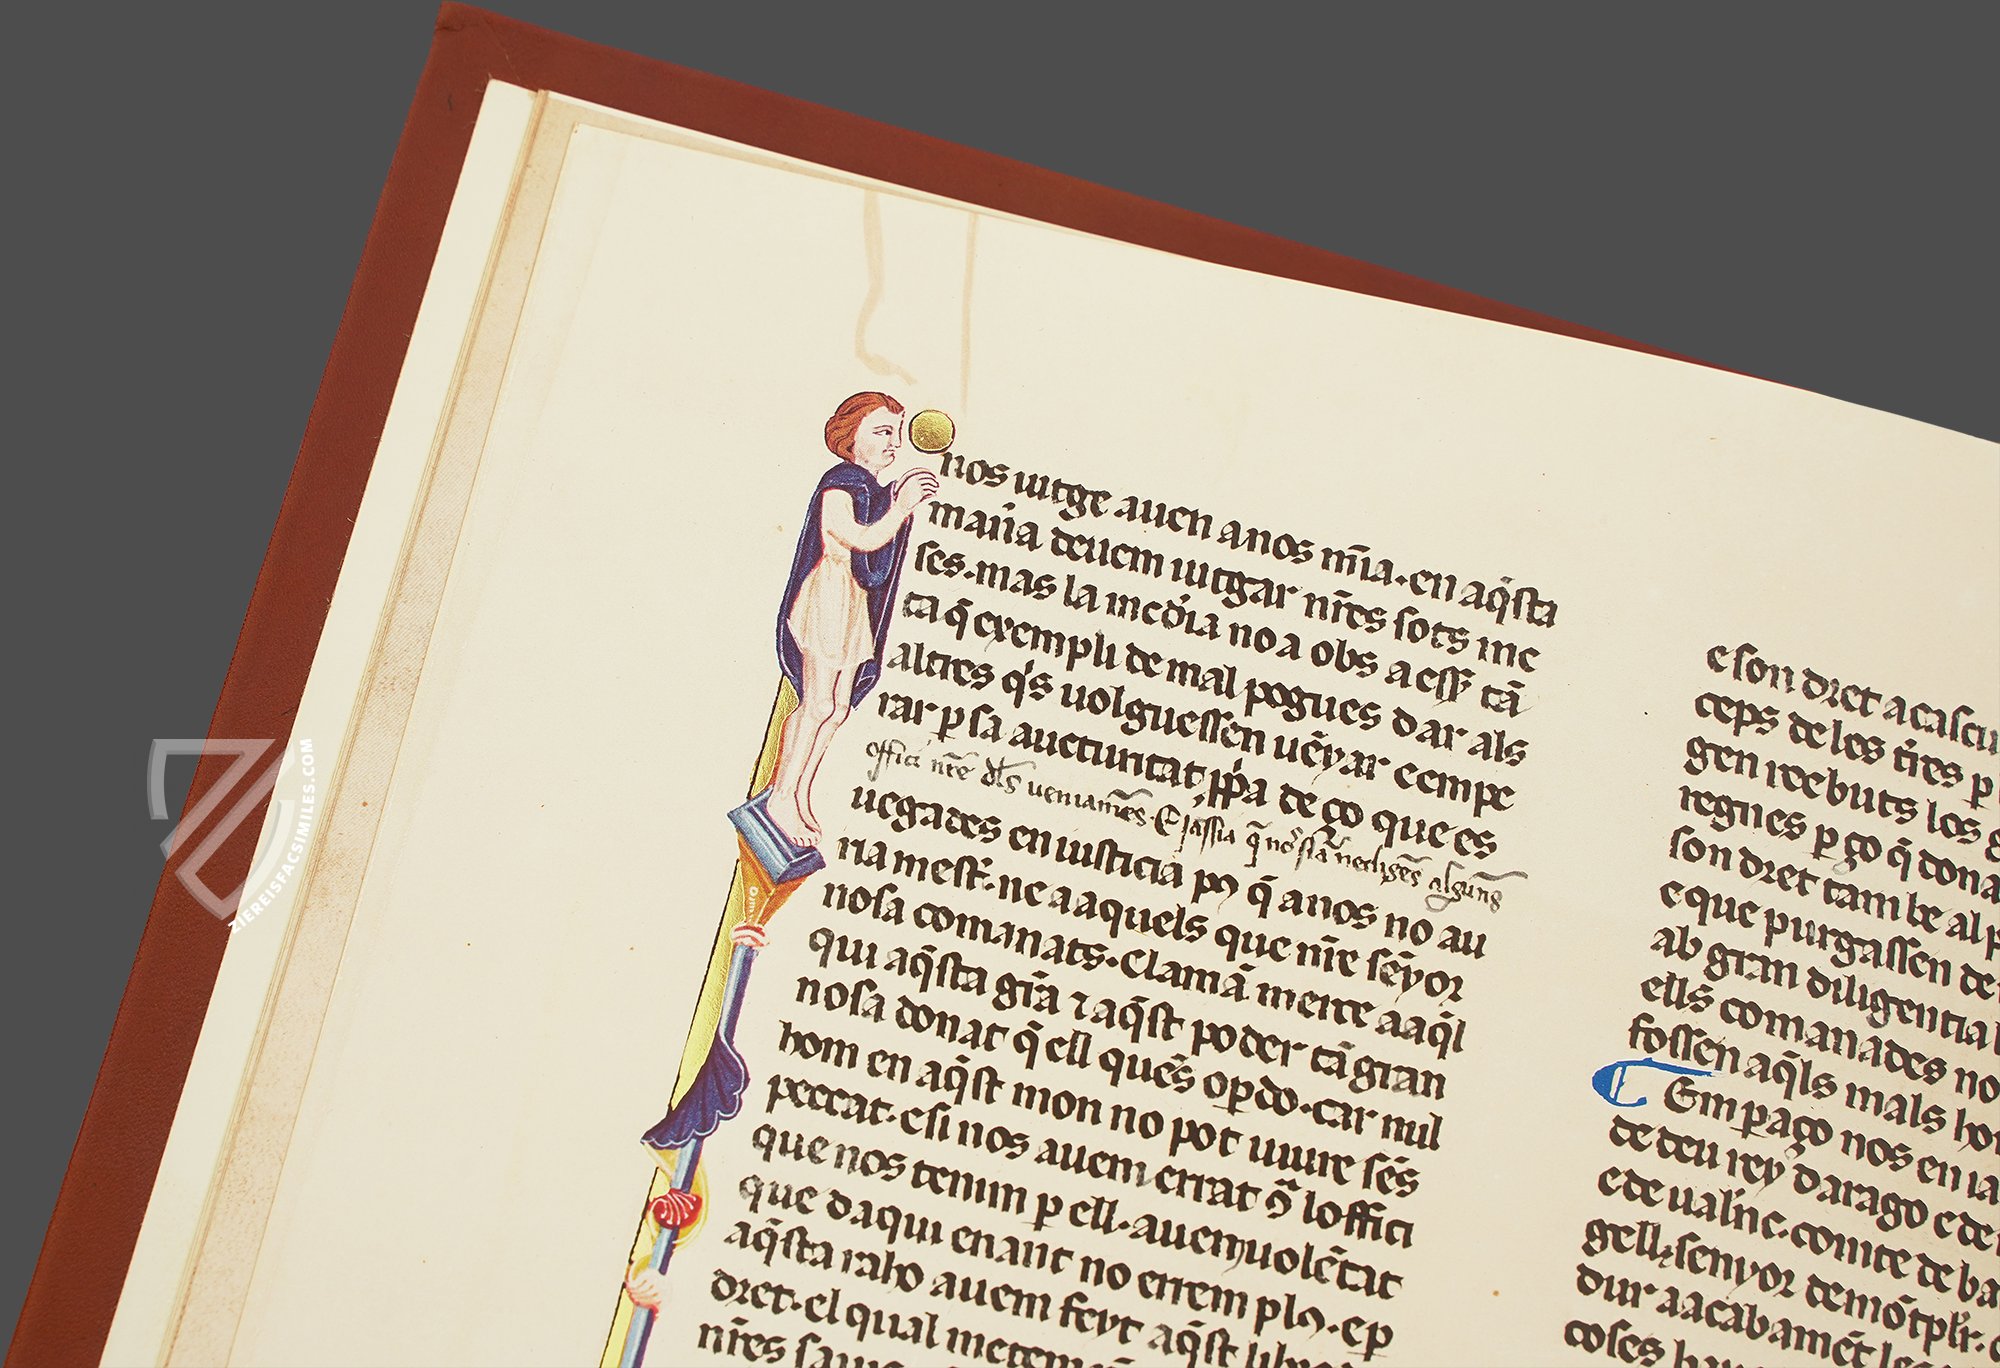 nos iutge auen anos mīa·en aq̄sta
man̄a deuem iutgar nr̄es sots me
ses·mas la mcōia no a obs a eſſ̄ tā
ta q̄ exempli de mal pogues dar als
altres q̄s uolgueſſen uēyar e empe
rar ꝑ sa auctoritat ꝓp̄a de ço que es
offici nr̄e
uegades en iusticia q̄ anos no au
ria mest̄·ne a aquels que nr̄e sēyor
nosa comanats·clamā merce a aq̄l
qui aq̄sta grā ⁊ aq̄st poder tā gran
nosa donat q̄ ell quēs ꝑdo·car nul
hom en aq̄st mon no pot uiure sēs
peccat·e si nos auem errat loffici
que nos tenim ꝑ ell·auem uolētat
que daqui enant no errem pꝰ·e ꝑ
aq̄sta raho auem feyt aq̄st libre
dret·el qual metem
nr̄es
e son dret a cascu
ceps de les tr̄res ꝑ
gen reebuts los
regnes ꝑ ço q̄ dona
son dret tam be al p
e que purgaſſen de
ab gran diligencia
ells comanades no
foſſen aq̄ls mals ho
Em ꝑ aço nos en ia
de deu rey darago e de
e de ualn̄c·comte de ba
gell⁊ senyor de mōtpl̄r·
dur a acabamēt lo
coses
ZIEREISFACSIMILES.COM